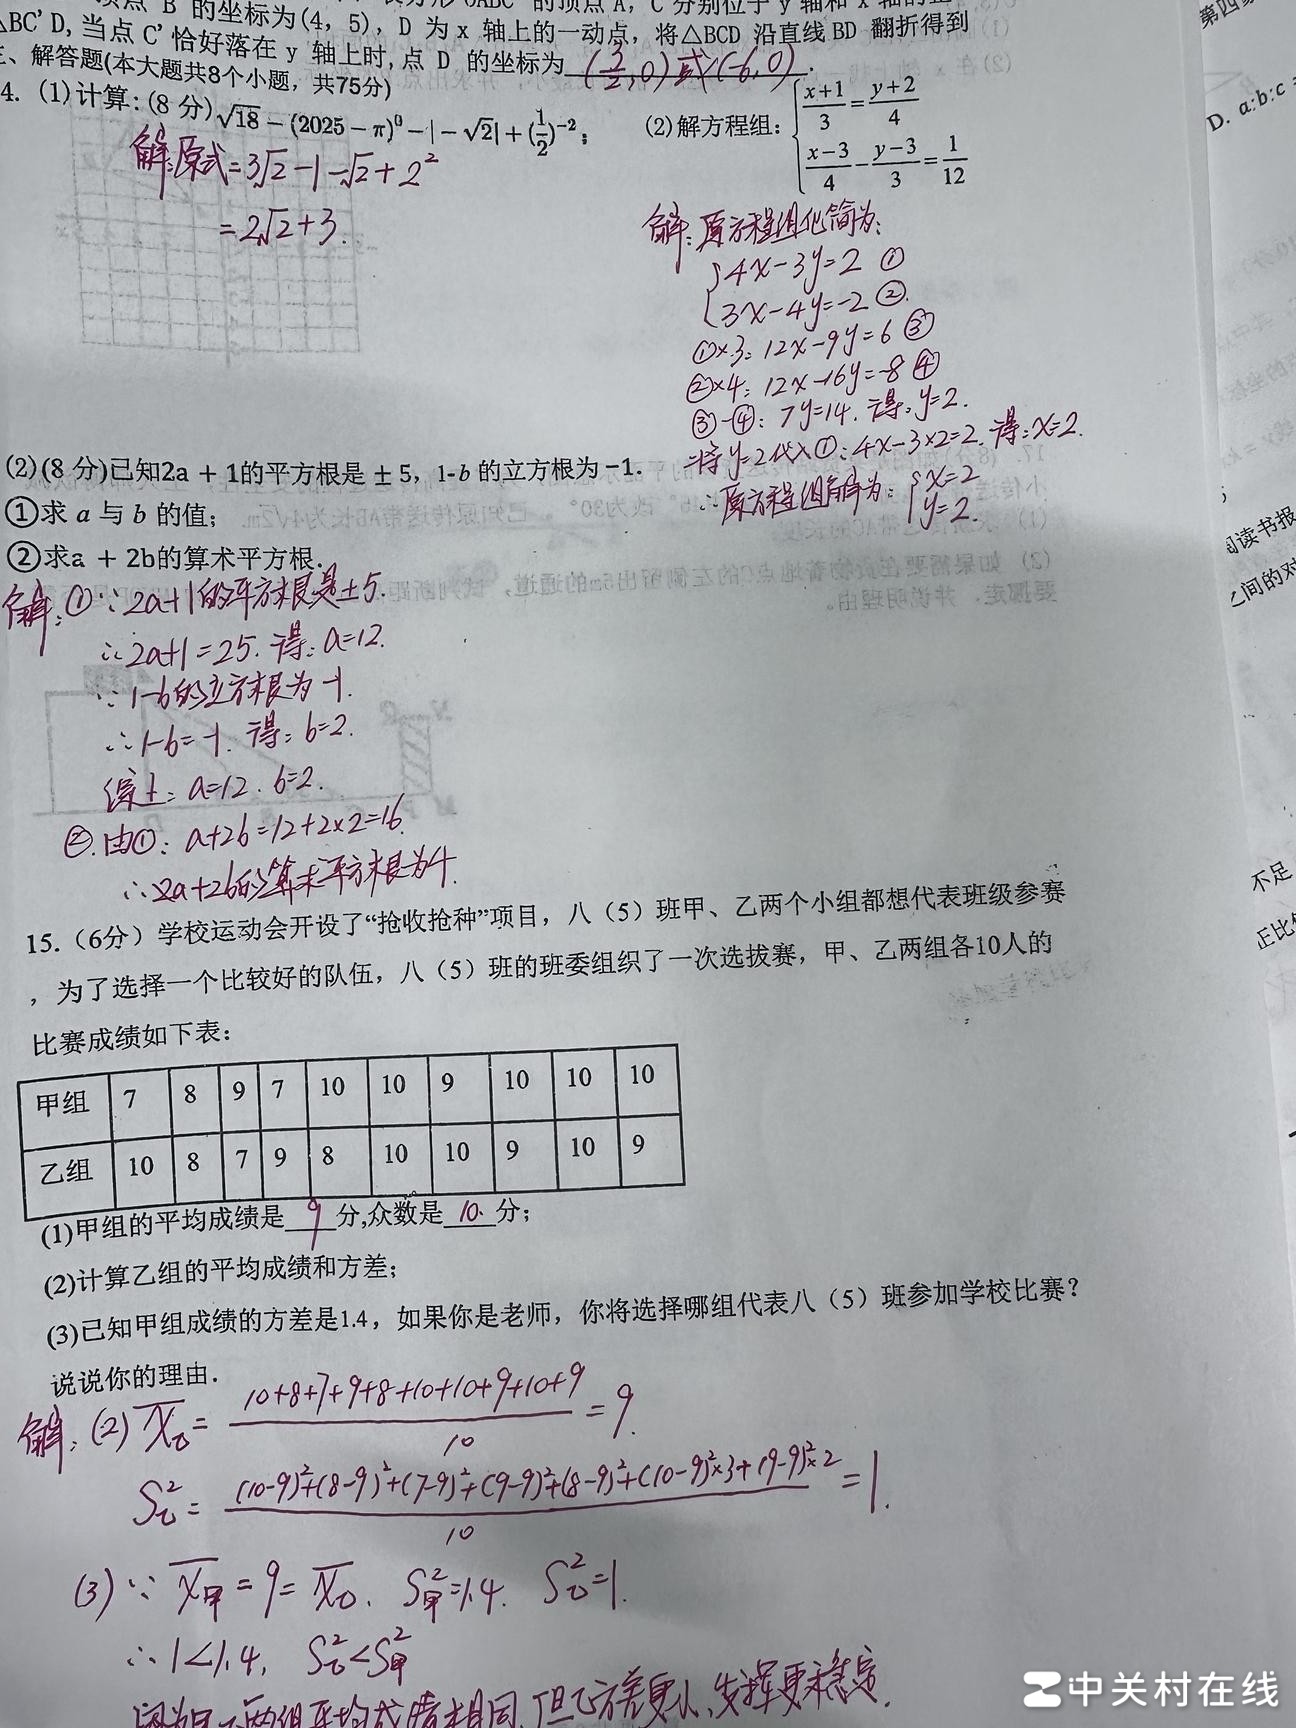 顶点 B 的坐标为(4, 5), D 为 x 轴上的一动点, 将△BCD 沿直线BD 翻折得到
△BC'D, 当点 C' 恰好落在 y 轴上时, 点 D 的坐标为 (3/2,0)或(-6,0).
三、解答题(本大题共8个小题, 共75分)
4. (1)计算: (8 分) √18 − (2025 − π)⁰ − |−√2| + (1/2)⁻²;
解:原式=3√2-1-√2+2²
=2√2+3.
(2)解方程组: { (x+1)/3 = (y+2)/4
(x−3)/4 − (y−3)/3 = 1/12
解:原方程组化简为:
{4x-3y=2 ①
3x-4y=-2 ②.
①×3: 12x-9y=6 ③
②×4: 12x-16y=-8 ④
③-④: 7y=14. 得: y=2.
将y=2代入①: 4x-3×2=2. 得: x=2.
∴原方程组解为: {x=2
y=2.
(2)(8 分)已知2a + 1的平方根是 ± 5, 1-b 的立方根为 −1.
①求 a 与 b 的值;
②求a + 2b的算术平方根.
解: ①∵2a+1的平方根是±5.
∴2a+1=25. 得: a=12.
∵1-b的立方根为-1.
∴1-b=-1. 得: b=2.
综上: a=12. b=2.
②.由①: a+2b=12+2×2=16.
∴2a+2b的算术平方根为4.
15.（6分）学校运动会开设了“抢收抢种”项目，八（5）班甲、乙两个小组都想代表班级参赛
，为了选择一个比较好的队伍，八（5）班的班委组织了一次选拔赛，甲、乙两组各10人的
比赛成绩如下表:
甲组 7 8 9 7 10 10 9 10 10 10
乙组 10 8 7 9 8 10 10 9 10 9
(1)甲组的平均成绩是 9 分,众数是 10. 分;
(2)计算乙组的平均成绩和方差;
(3)已知甲组成绩的方差是1.4，如果你是老师，你将选择哪组代表八（5）班参加学校比赛？
说说你的理由.
解: (2) x̄乙= (10+8+7+9+8+10+10+9+10+9)/10 =9.
S乙²= ((10-9)²+(8-9)²+(7-9)²+(9-9)²+(8-9)²+(10-9)²×3+(9-9)²×2)/10 =1.
(3) ∵ x̄甲=9=x̄乙. S甲²=1.4. S乙²=1.
∴1<1.4, S乙²<S甲²
两组平均成绩相同, 但乙方差更小, 发挥更稳定.
第四
D. a:b:c
阅读书报
之间的对
不足
正比
中关村在线